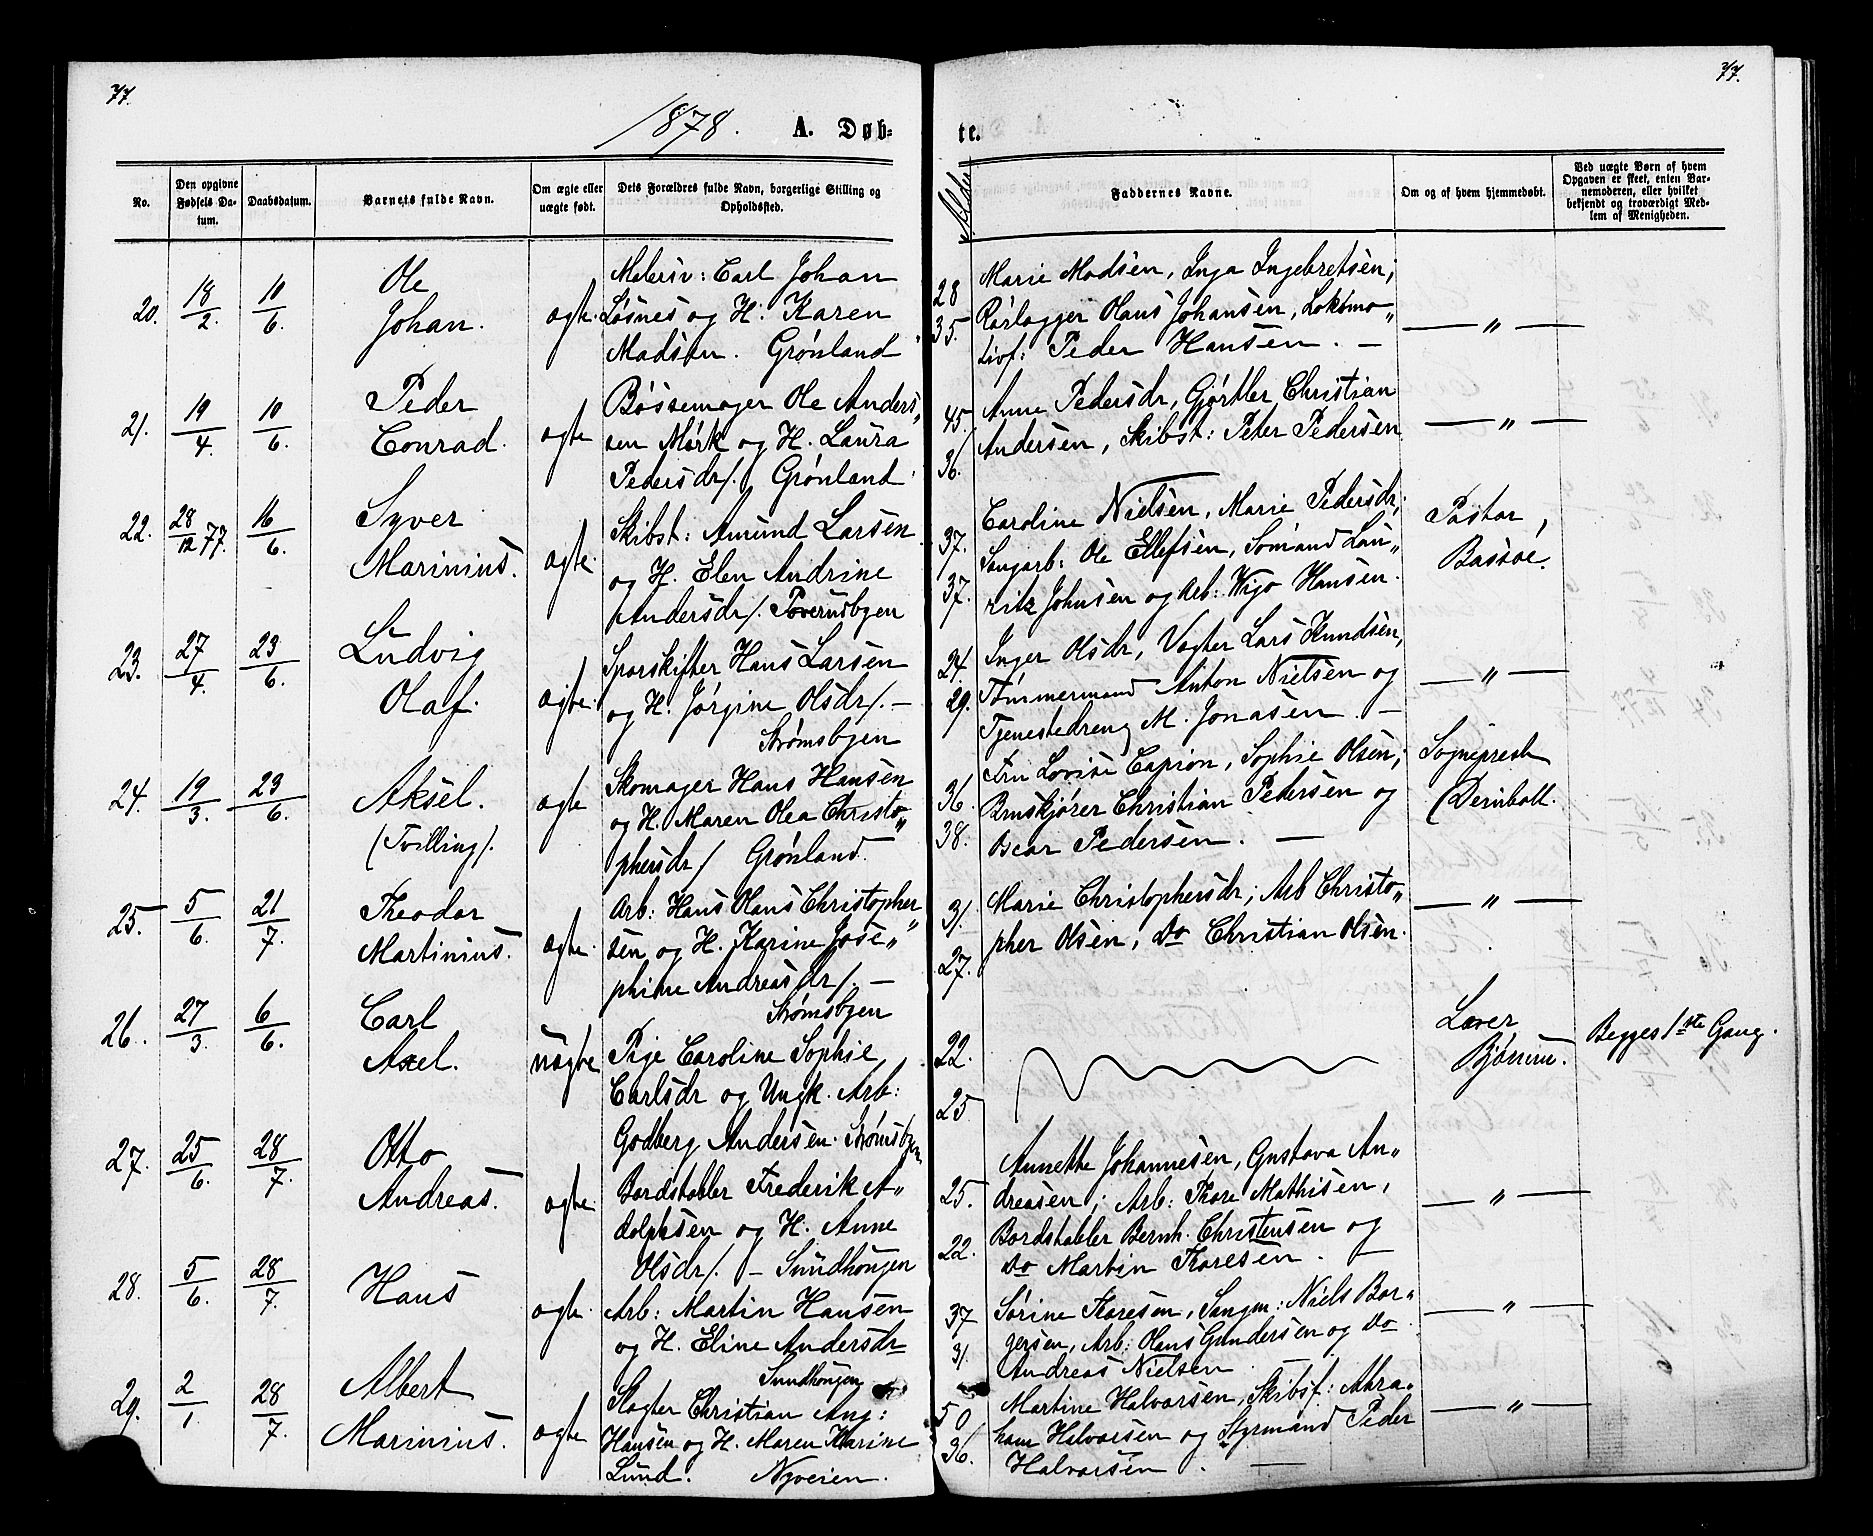 77.
77.
1878. A. Døb-
te.
No.
Den opgivne Fødsels Da-tum.
Daabsdatum.
Barnets fulde Navn.
Om ægte eller uægte født.
Dets Forældres fulde Navn, borgerlige Stilling og Opholdssted.
Alder
Faddernes Navne.
Om og af hvem hjemmedøbt.
Ved uægte Børn af hvem Opgaven er skeet, enten Bar-nemoderen, eller hvilket bekjendt og troværdigt Med-lem af Menigheden.
20. 18/2. 10/6. Ole Johan. ægte.
Malersv: Carl Johan
Løsnes og H. Karen
Madsen. Grønland
28 35.
Marie Madsen, Inga Ingebretsen,
Rørlægger Hans Johansen, Lokomo„
tivf: Peder Hansen. —
— „ —
21. 19/4. 10/6. Peder Conrad. ægte
Bøssemager Ole Anders„
sen Mørk og H. Laura
Pedersdr/. Grønland
45. 36.
Anne Pedersdr, Gjørtler Christian
Andersen, Skibst: Peter Pedersen
— „ —
22. 28/12 77. 16/6. Syver Marinius. ægte.
Skibst: Amund Larsen
og H. Elen Andrine
Andersdr/.
37. 37.
Caroline Nielsen, Marie Pedersdr,
Saugarb: Ole Ellefsen, Sømand Lau„
ritz Johnsen og Arb: Wigo Hansen.
Pastor, Bassøe.
23. 27/4. 23/6. Ludvig Olaf. ægte.
Sporskifter Hans Larsen
og H. Jørgine Olsdr/. —
Strømsbyen
24. 29.
Inger Olsdr, Vagter Lars Knudsen,
Tømmermand Anton Nielsen og
Tjenestedreng M. Jonasen. —
— „ —
24. 19/3. 23/6. Aksel. (Tvilling). ægte
Skomager Hans Hansen
og H. Maren Olea Christo„
phersdr/ Grønland.
36. 38.
Fru Lovise Capion, Sophie Olsen;
Christian Pedersen og
Oscar Pedersen. —
Sogneprest
25. 5/6. 21/7. Theodor Martinius. ægte.
Arb: Hans Olaus Christopher„
sen og H. Karine Jose„
phine Andreasdr/. —
Strømsbyen
31. 27.
Marie Christophersdr; Arb Christo„
pher Olsen, Do Christian Olsen.
— „ —
26. 27/3. 6/6. Carl Axel. uægte
Pige Caroline Sophie
Carlsdr og Ungk. Arb:
Godberg Andersen. Strømsbyen
22. 25
Lærer
Begges 1ste Gang.
27. 25/6. 28/7. Otto Andreas. ægte.
Bordstabler Frederik A„
dolphsen og H. Anne
Olsdr/. — Sundhougen
25. 22.
Annette Johannesen, Gustava An„
dreasen; Arb: Thore Mathisen,
Bordstabler Bernh. Christensen og
Do Martin Thoresen. —
— „ —
28. 5/6. 28/7. Hans ægte.
Arb: Martin Hansen
og H. Eline Andersdr
Sundhougen
37 31.
Sørine Thoresen, Saugm: Niels Bor„
gersen, Arb: Hans Gundersen og Do
Andreas Nielsen
— „ —
29. 2/1. 28/7. Albert Marinius. ægte
Slagter Christian Aug:
Hansen og H. Maren Karine
Lund. Nyveien.
50 36.
Martine Halvorsen, Skibsf: Abra„
ham Halvorsen og Styrmand Peder
Halvorsen. —
— „ —